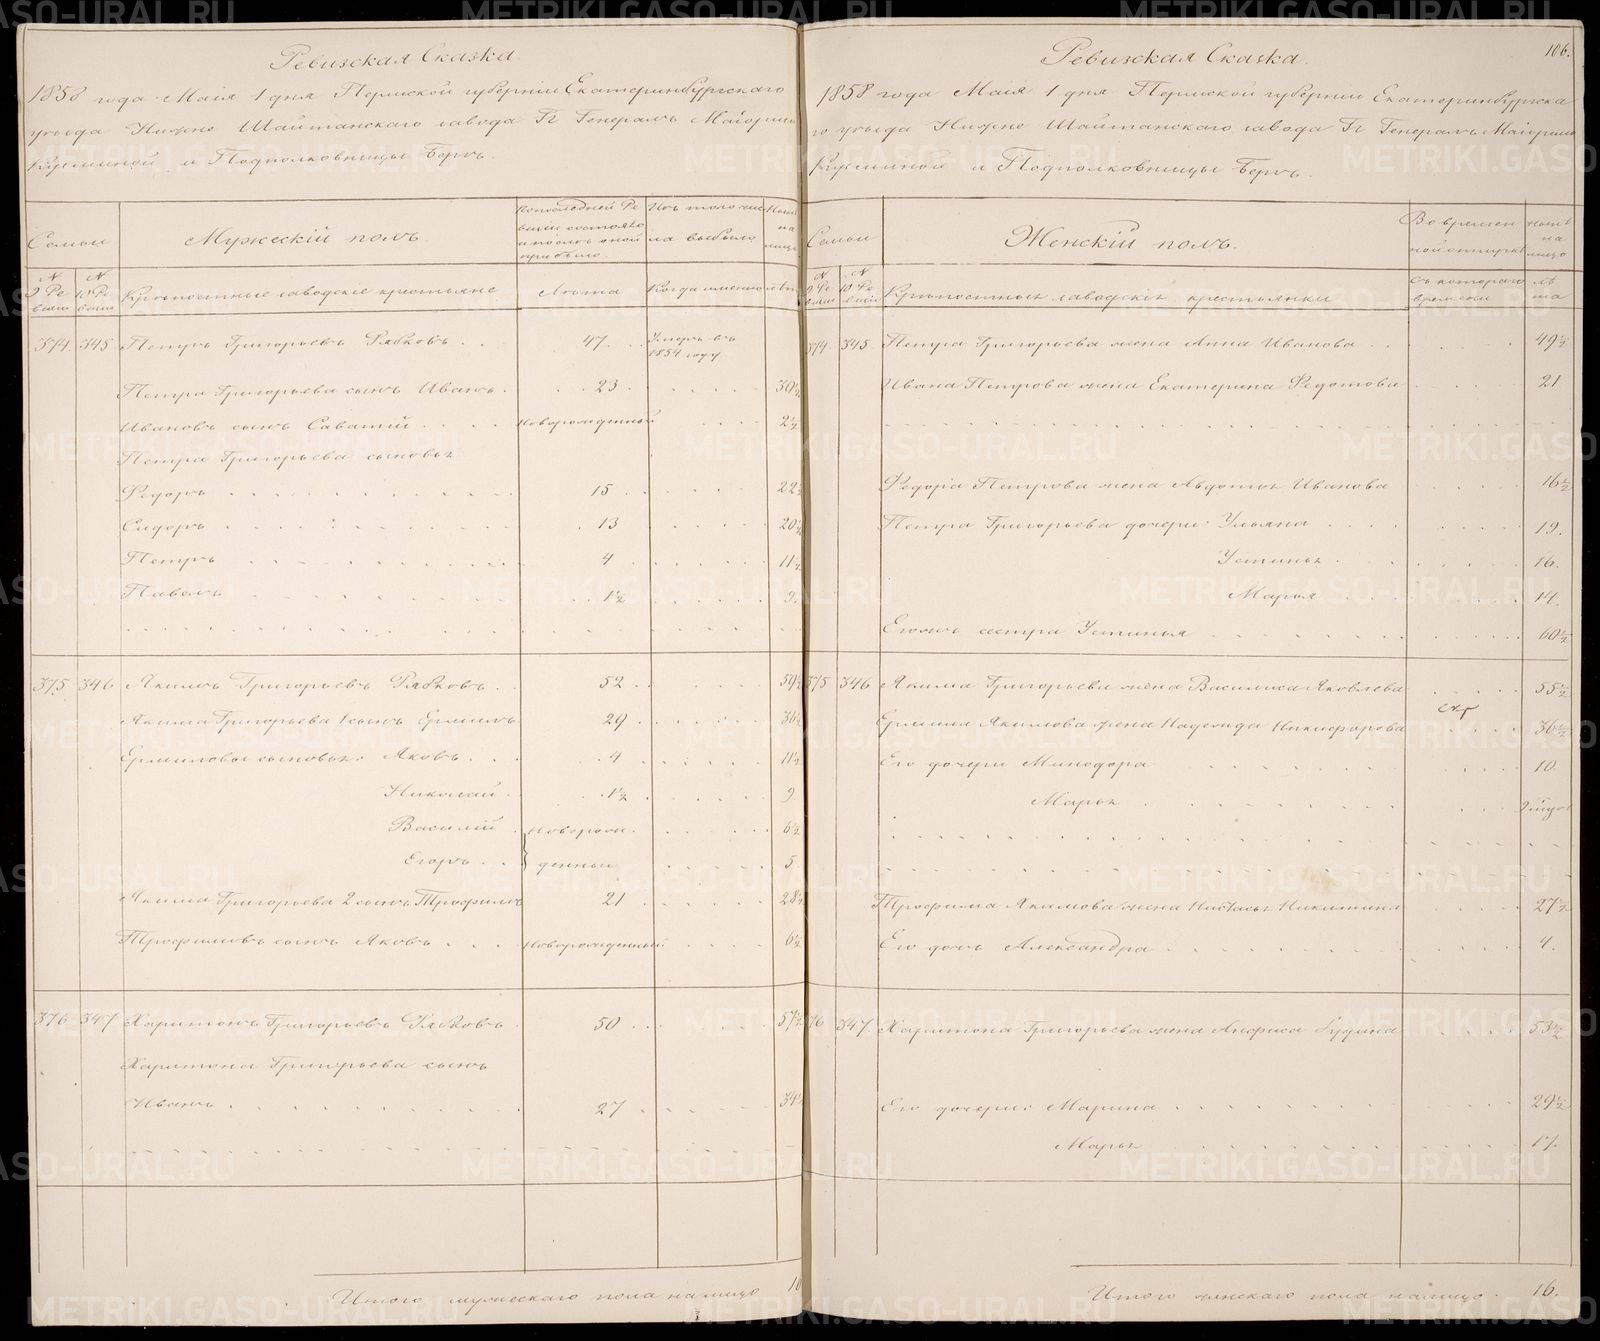 Ревизская Сказка.
1858 года Маія 1 дня Пермской губерніи Екатеринбургскаго
уѣзда Нижне Шайтанскаго завода Гг Генералъ Маіорши
Кузьминой и Подполковницы Бергъ.
Семьи
Мужескій полъ.
По последней Ре
визіи состояло
и послѣ оной
прибыло.
Изъ того чис
ла выбыло
Нынѣ
на
лицо
N
9 Ре
визіи
N
10 Ре
визіи
Крѣпостные заводскіе крестьяне
Лѣта
Когда именно
лѣта
374. 345 Петръ Григорьевъ Рябковъ . . 47. Умеръ въ
1854 году
Петра Григорьева сынъ Иванъ. 23 30½
Ивановъ сынъ Саватій новорожденный 2½
Петра Григорьева сыновья
Федоръ 15 22½
Сидоръ 13 20½
Петръ 4 11½
Павелъ 1½ 9.
375 346 Якимъ Григорьевъ Рябковъ. 52 59½
Якима Григорьева 1 сынъ Ермилъ 29 36½
Ермиловы сыновья: Яковъ. 4 11½
Николай 1½ 9
Василій новорож. 6½
Егоръ денныи 5
Якима Григорьева 2 сынъ Трофимъ 21 28½
Трофимовъ сынъ Яковъ новорожденной 6½
376 347 Харитонъ Григорьевъ Рябковъ 50 57½
Харитона Григорьева сынъ
Иванъ 27 34½
Итого мужескаго пола на лицо
106.
Ревизская Сказка.
1858 года Маія 1 дня Пермской губерніи Екатеринбургска
го уѣзда Нижне Шайтанскаго завода Гг Генералъ Маіорши
Кузьминой и Подполковницы Бергъ.
Семьи
Женскій полъ.
Во времен
ной отлучкѣ
Нынѣ
на
лицо
N
9 Ре
визіи
N
10 Ре
визіи
Крѣпостныя заводскія крестьянки
Съ котораго
времени
лѣ
та
374. 345 Петра Григорьева жена Анна Иванова 49½
Ивана Петрова жена Екатерина Федотова 21
Федора Петрова жена Авдотья Иванова 16½
Петра Григорьева дочери: Ульяна 19.
Устинья 16.
Марья 14.
Егожъ сестра Устинья 60½
375 346 Якима Григорьева жена Василиса Яковлева 55½
Ермила Якимова жена Надежда Никифорова 36½
Его дочери Минодора 10.
Марья
Трофима Якимова жена Настасья Никитина 27½
Его дочь Александра 4.
76 347. Харитона Григорьева жена Анфиса 53½
Его дочери: Марина 29½
Марья 17.
Итого женскаго пола на лицо. 16.
METRIKI.GASO-URAL.RU